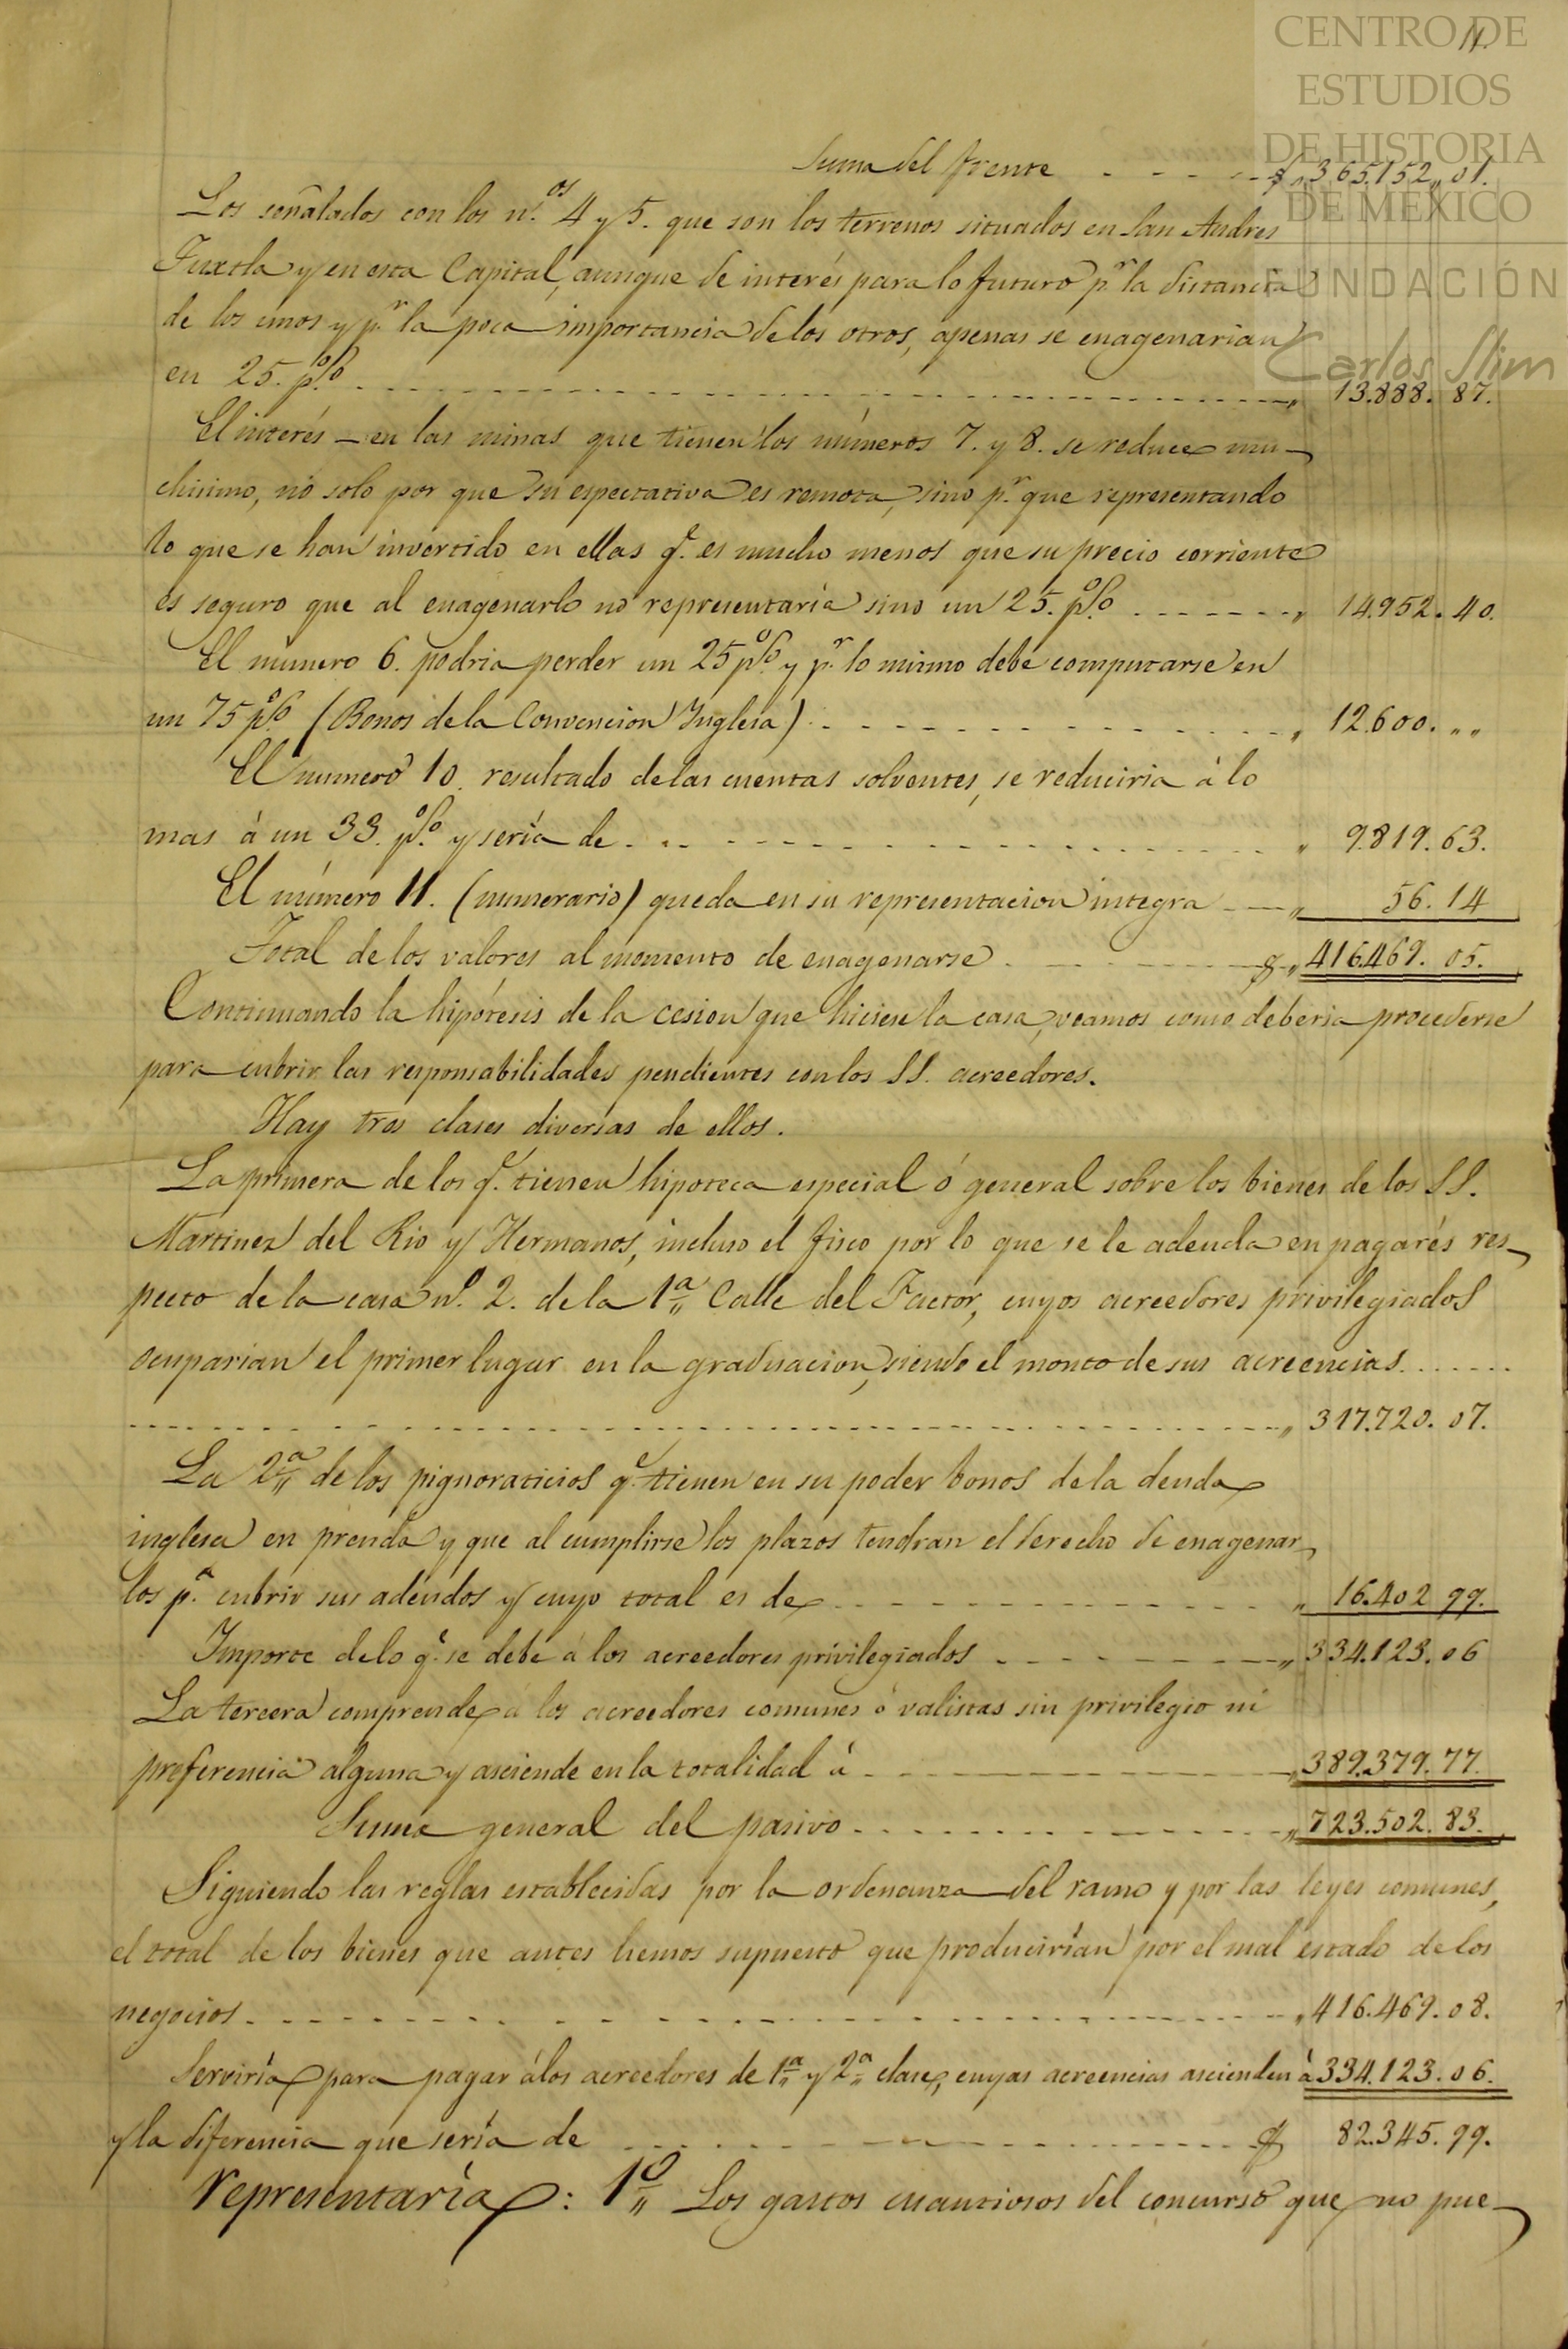 CENTRO DE
ESTUDIOS
DE HISTORIA
DE MEXICO
FUNDACIÓN
Carlos Slim
11.
Suma del frente - - - - - $ „ 365.152 „ 01.
Los señalados con los n.os 4 y 5. que son los terrenos situados en San Andres
Tuxtla y en esta Capital, aunque de interés para lo futuro p.r la distancia
de los unos y p.r la poca importancia de los otros, apenas se enagenarian
en 25. p.% - - - - - „ 13.888. 87.
El interés - en las minas que tienen los números 7. y 8. se reduce mu-
chisimo, no solo por que su espectativa es remota, sino p.r que representando
lo que se han invertido en ellas q.e es mucho menos que su precio corriente
es seguro que al enagenarlo no representaría sino un 25. p.% - - - - - „ 14.952. 40.
El numero 6. podria perder un 25 p.% y p.r lo mismo debe computarse en
un 75 p.% (Bonos de la Convencion Inglesa) - - - - - „ 12.600. „ „
El numero 10. resultado de las cuentas solventes, se reduciria á lo
mas á un 33. p.% y sería de - - - - - „ 9.819. 63.
El número 11. (numerario) queda en su representacion integra - - - „ 56. 14
Total de los valores al momento de enagenarse - - - - - $ „ 416.469. 05.
Continuando la hipótesis de la cesion que hiciese la casa, veamos como deberia procederse
para cubrir las responsabilidades pendientes con los SS. acreedores.
Hay tres clases diversas de ellos.
La primera de los q.e tienen hipoteca especial ó general sobre los bienes de los SS.
Martinez del Rio y Hermanos, incluso el fisco por lo que se le adeuda en pagarés res-
pecto de la casa n.o 2. de la 1.a Calle del Factor, cuyos acreedores privilegiados
ocuparian el primer lugar en la graduacion, siendo el monto de sus acreencias. . . . . .
- - - - - „ 317.720. 07.
La 2.a de los pignoraticios q.e tienen en su poder bonos de la deuda
inglesa en prenda y que al cumplirse los plazos tendran el derecho de enagenar-
los p.a cubrir sus adeudos y cuyo total es de - - - - - „ 16.402 99.
Importe de lo q.e se debe á los acreedores privilegiados - - - - - „ 334.123. 06
La tercera comprende á los acreedores comunes ó valistas sin privilegio ni
preferencia alguna y asciende en la totalidad á - - - - - „ 389.379. 77.
Suma general del pasivo - - - - - „ 723.502. 83.
Siguiendo las reglas establecidas por la ordenanza del ramo y por las leyes comunes,
el total de los bienes que antes hemos supuesto que producirían por el mal estado de los
negocios - - - - - „ 416.469. 08.
Serviría para pagar á los acreedores de 1.a y 2.a clase, cuyas acreencias ascienden á 334.123. 06.
y la diferencia que sería de - - - - - $ 82.345. 99.
representaría: 1.o Los gastos cuantiosos del concurso que no pue-